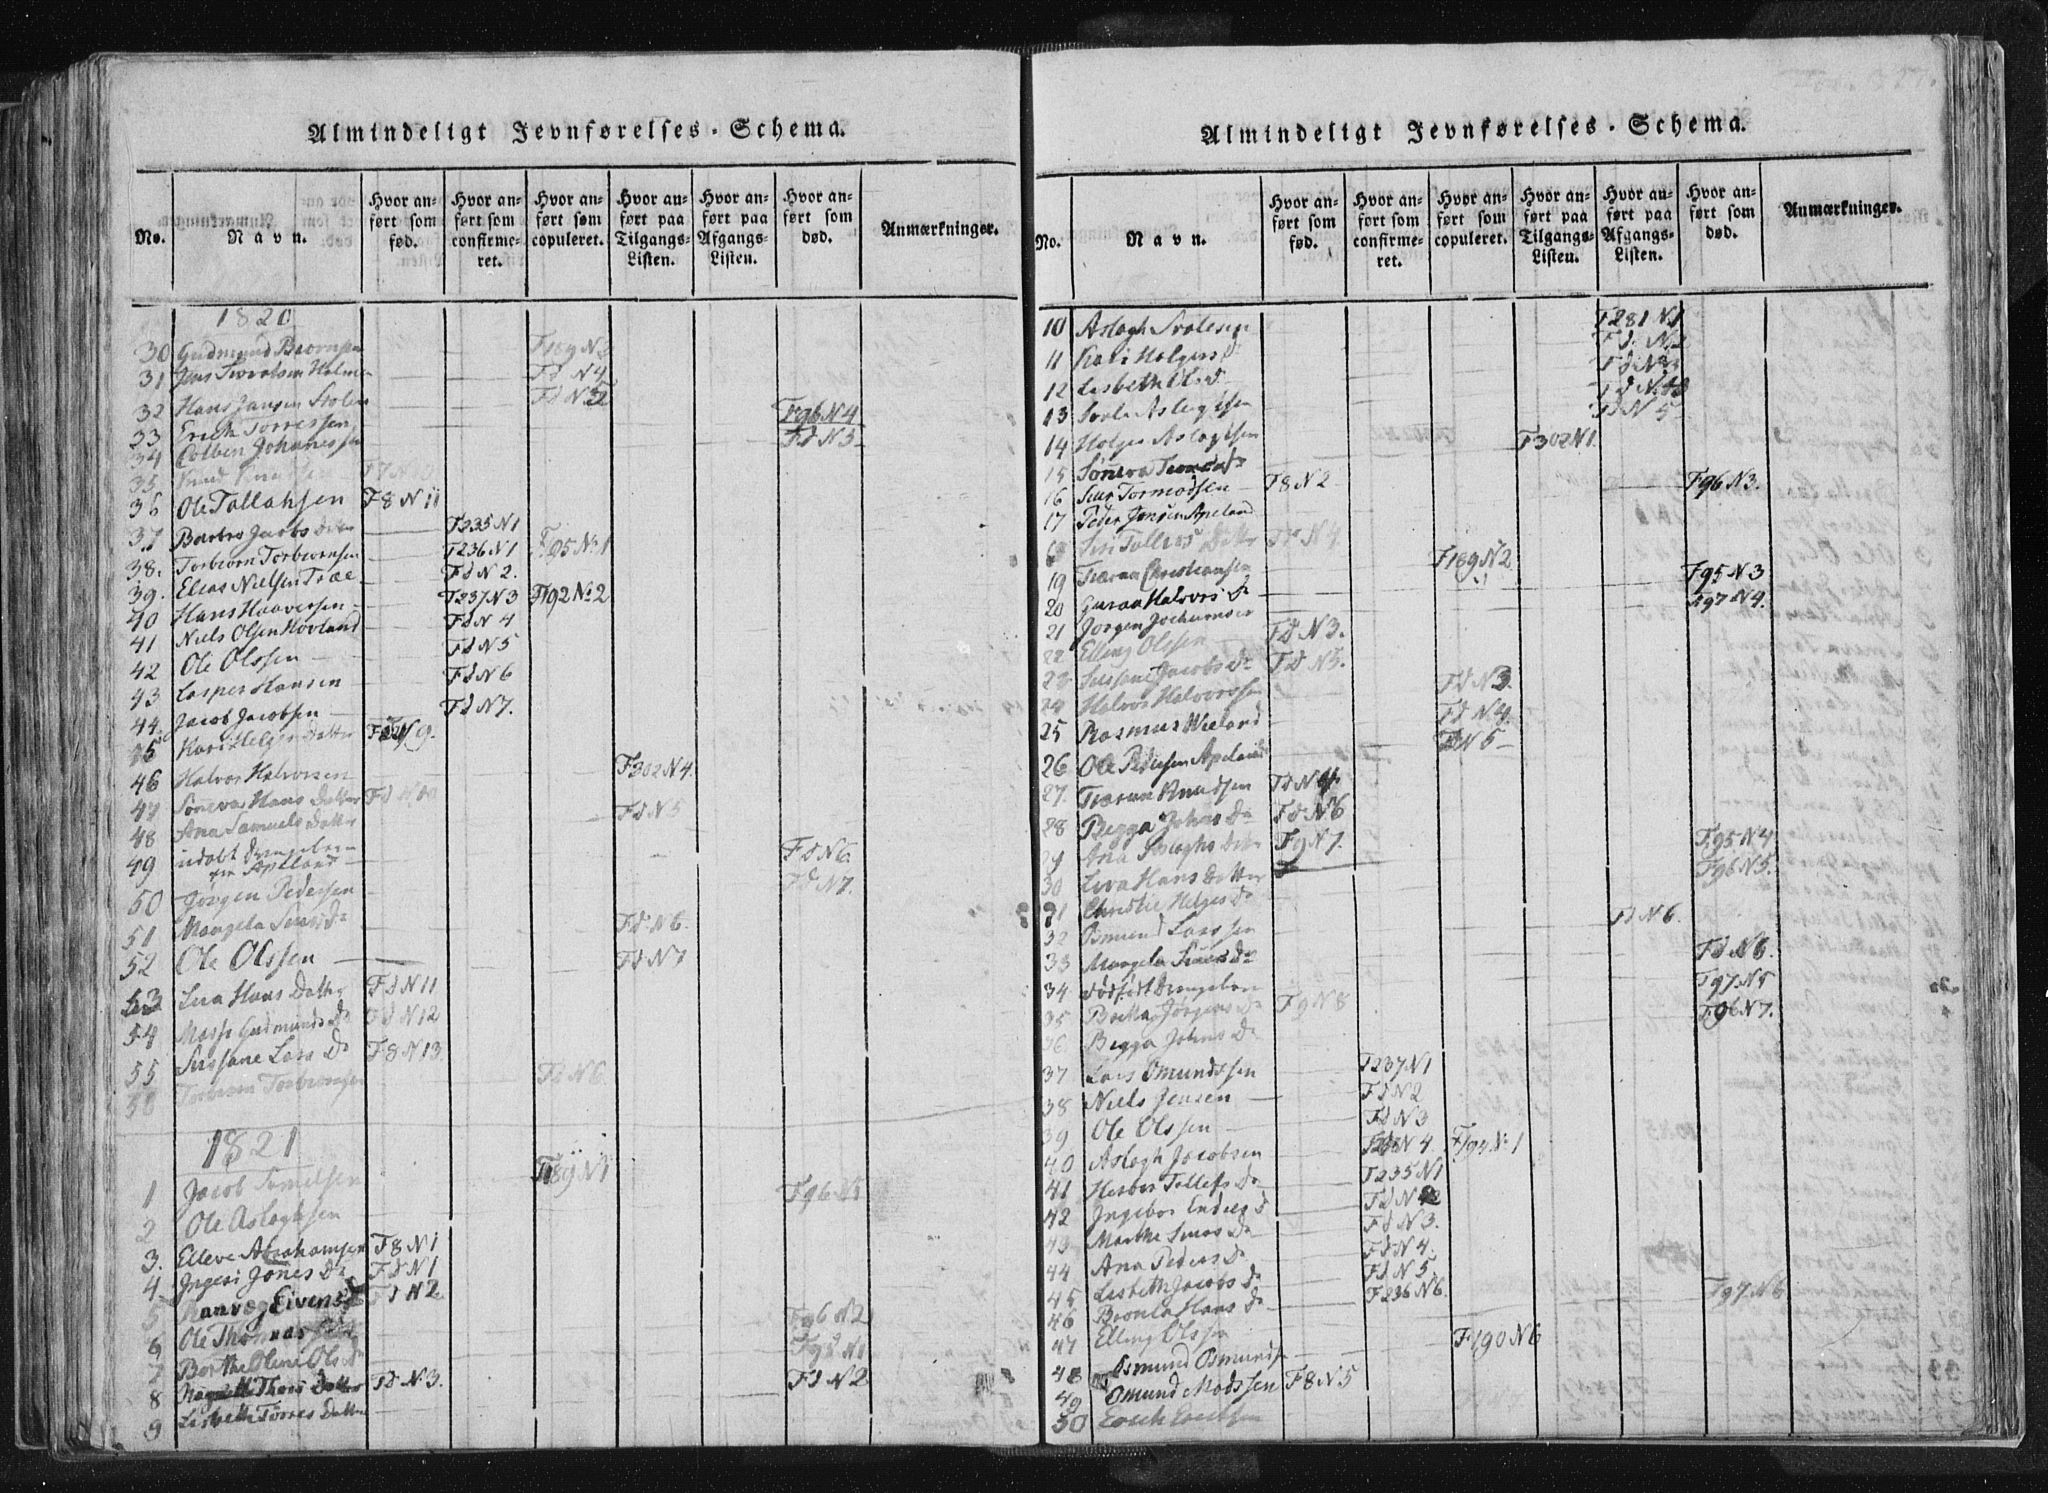 Almindeligt Jevnførelses-Schema.
No. Navn. Hvor anført som fød. Hvor anført som confirmeret. Hvor anført som copuleret. Hvor anført paa Tilgangs-Listen. Hvor anført paa Afgangs-Listen. Hvor anført som død. Anmærkninger.
1820
30 Gudmund Biørnsen F189 N3
31 Jens Sivertsen Holme Fd N4
32 Hans Jansen Stole Fd N5
33 Erich Torressen F96 N4
34 Colben Johannessen Fd N3
35 Knud Knudsen
36 Ole Tollahsen F8 N 11
37 Barbro Jacobs Datter F235 N1
38. Torbiørn Torbiørnsen F236 N1 F195 No 1
39. Elias Nielsen Træe Fd N 2.
40 Hans Haaversen F237 N3 F192 No 2
41 Niels Olsen Hovland Fd N 4
42 Ole Olssen Fd N5
43 Casper Hansen Fd N6
44 Jacob Jacobsen Fd N7.
45 Kari Helges Datter N 9.
46 Halvor Halvorsen F302 N4.
47 Søneva Hans Datter Fd N10
48 Ana Samuels Datter Fd N5
49 udøbt Drengebarn fra Apeland Fd N6.
50 Jørgen Pedersen Fd N7.
51 Mangela Sivers Dr Fd N6.
52 Ole Olssen Fd N7
53 Lisa Hans Datter Fd N11
54 Gudmunds Dr Fd N12
55 Sussane Lars Dr F8 N13.
56 Torbiørn Torbiørnsen Fd N6
1821
1 Jacob Tomelsen F189 N1
2 Ole Aslaghsen F96 N1
3. Elleve Abrahamsen F8 N1
4 Ingeri Jones Dr Fd N1
5 Eivens Fd N2
6 Ole Thomas F96 N2
7 Berthe Oline Ols Dr F95 N1
8 Thors Datter Fd N3. Fd N2
9 Lisbeth Torres Datter
Almindeligt Jevnførelses-Schema.
No. Navn. Hvor anført som fød. Hvor anført som confirmeret. Hvor anført som copuleret. Hvor anført paa Tilgangs-Listen. Hvor anført paa Afgangs-Listen. Hvor anført som død. Anmærkninger.
10 Aslagh F281 N1
11 Kari Holgers D Fd. N2
12 Lisbeth Ols D Fd N3
13 Aslagtsen Fd N.
14 Holger Aslagtsen Fd N 5
15 Søneva F302 N1
16 Siver Tormodsen F8 N2 F96 N3.
17 Peder Jensen Apeland
18 Siri Tollefs Datter N 4
19 Tiæran Christiansen F189 N2
20 Guroa Halvors Dr F95 N3
21 Jørgen Jochumsen F97 N4.
22 Elling Olssen Fd N3.
23 Sussane Jacobs Dr Fd N5.
24 Halvor Halvorssen Fd N3.
25 Rasmus Wieland Fd N4.
26 Ole Pedersen Apeland Fd N5
27. Tiæran Knudsen Fd N4.
28 Begga Johns Dr Fd N6
29 Ana Aslaghs Datter F9 N7. F95 N4
30 Liva Hans Datter F96 N5.
31 Christie Helges Dr
32 Osmund Larssen Fd N6.
33 Mangela Sivers Dr Fd N6.
34 dødfødt Drengebarn F97 N5
35 Berthe Jørgens Dr F9 N8 F96 N7.
36 Begga Johns Dr
37 Lars Omundssen F237 N1
38 Niels Jensen Fd N2
39 Ole Olssen Fd N3
40 Aslagh Jacobsen N4 F194 No 1
41 Herbor Tollefs Dr F235 N1
42 Ingebor Endres D Fd N2
43 Marthe Sivers Dr Fd N3.
44 Ana Peders Dr Fd N4.
45 Lisbeth Jacobs Dr Fd N5
46 Bronla Hans Dr F236 N6. F97 N6
47 Elling Olssen F190 N6
48 Osmund Osmundsen
49 Omund Madssen F8 N5
50 Erich Ericksen